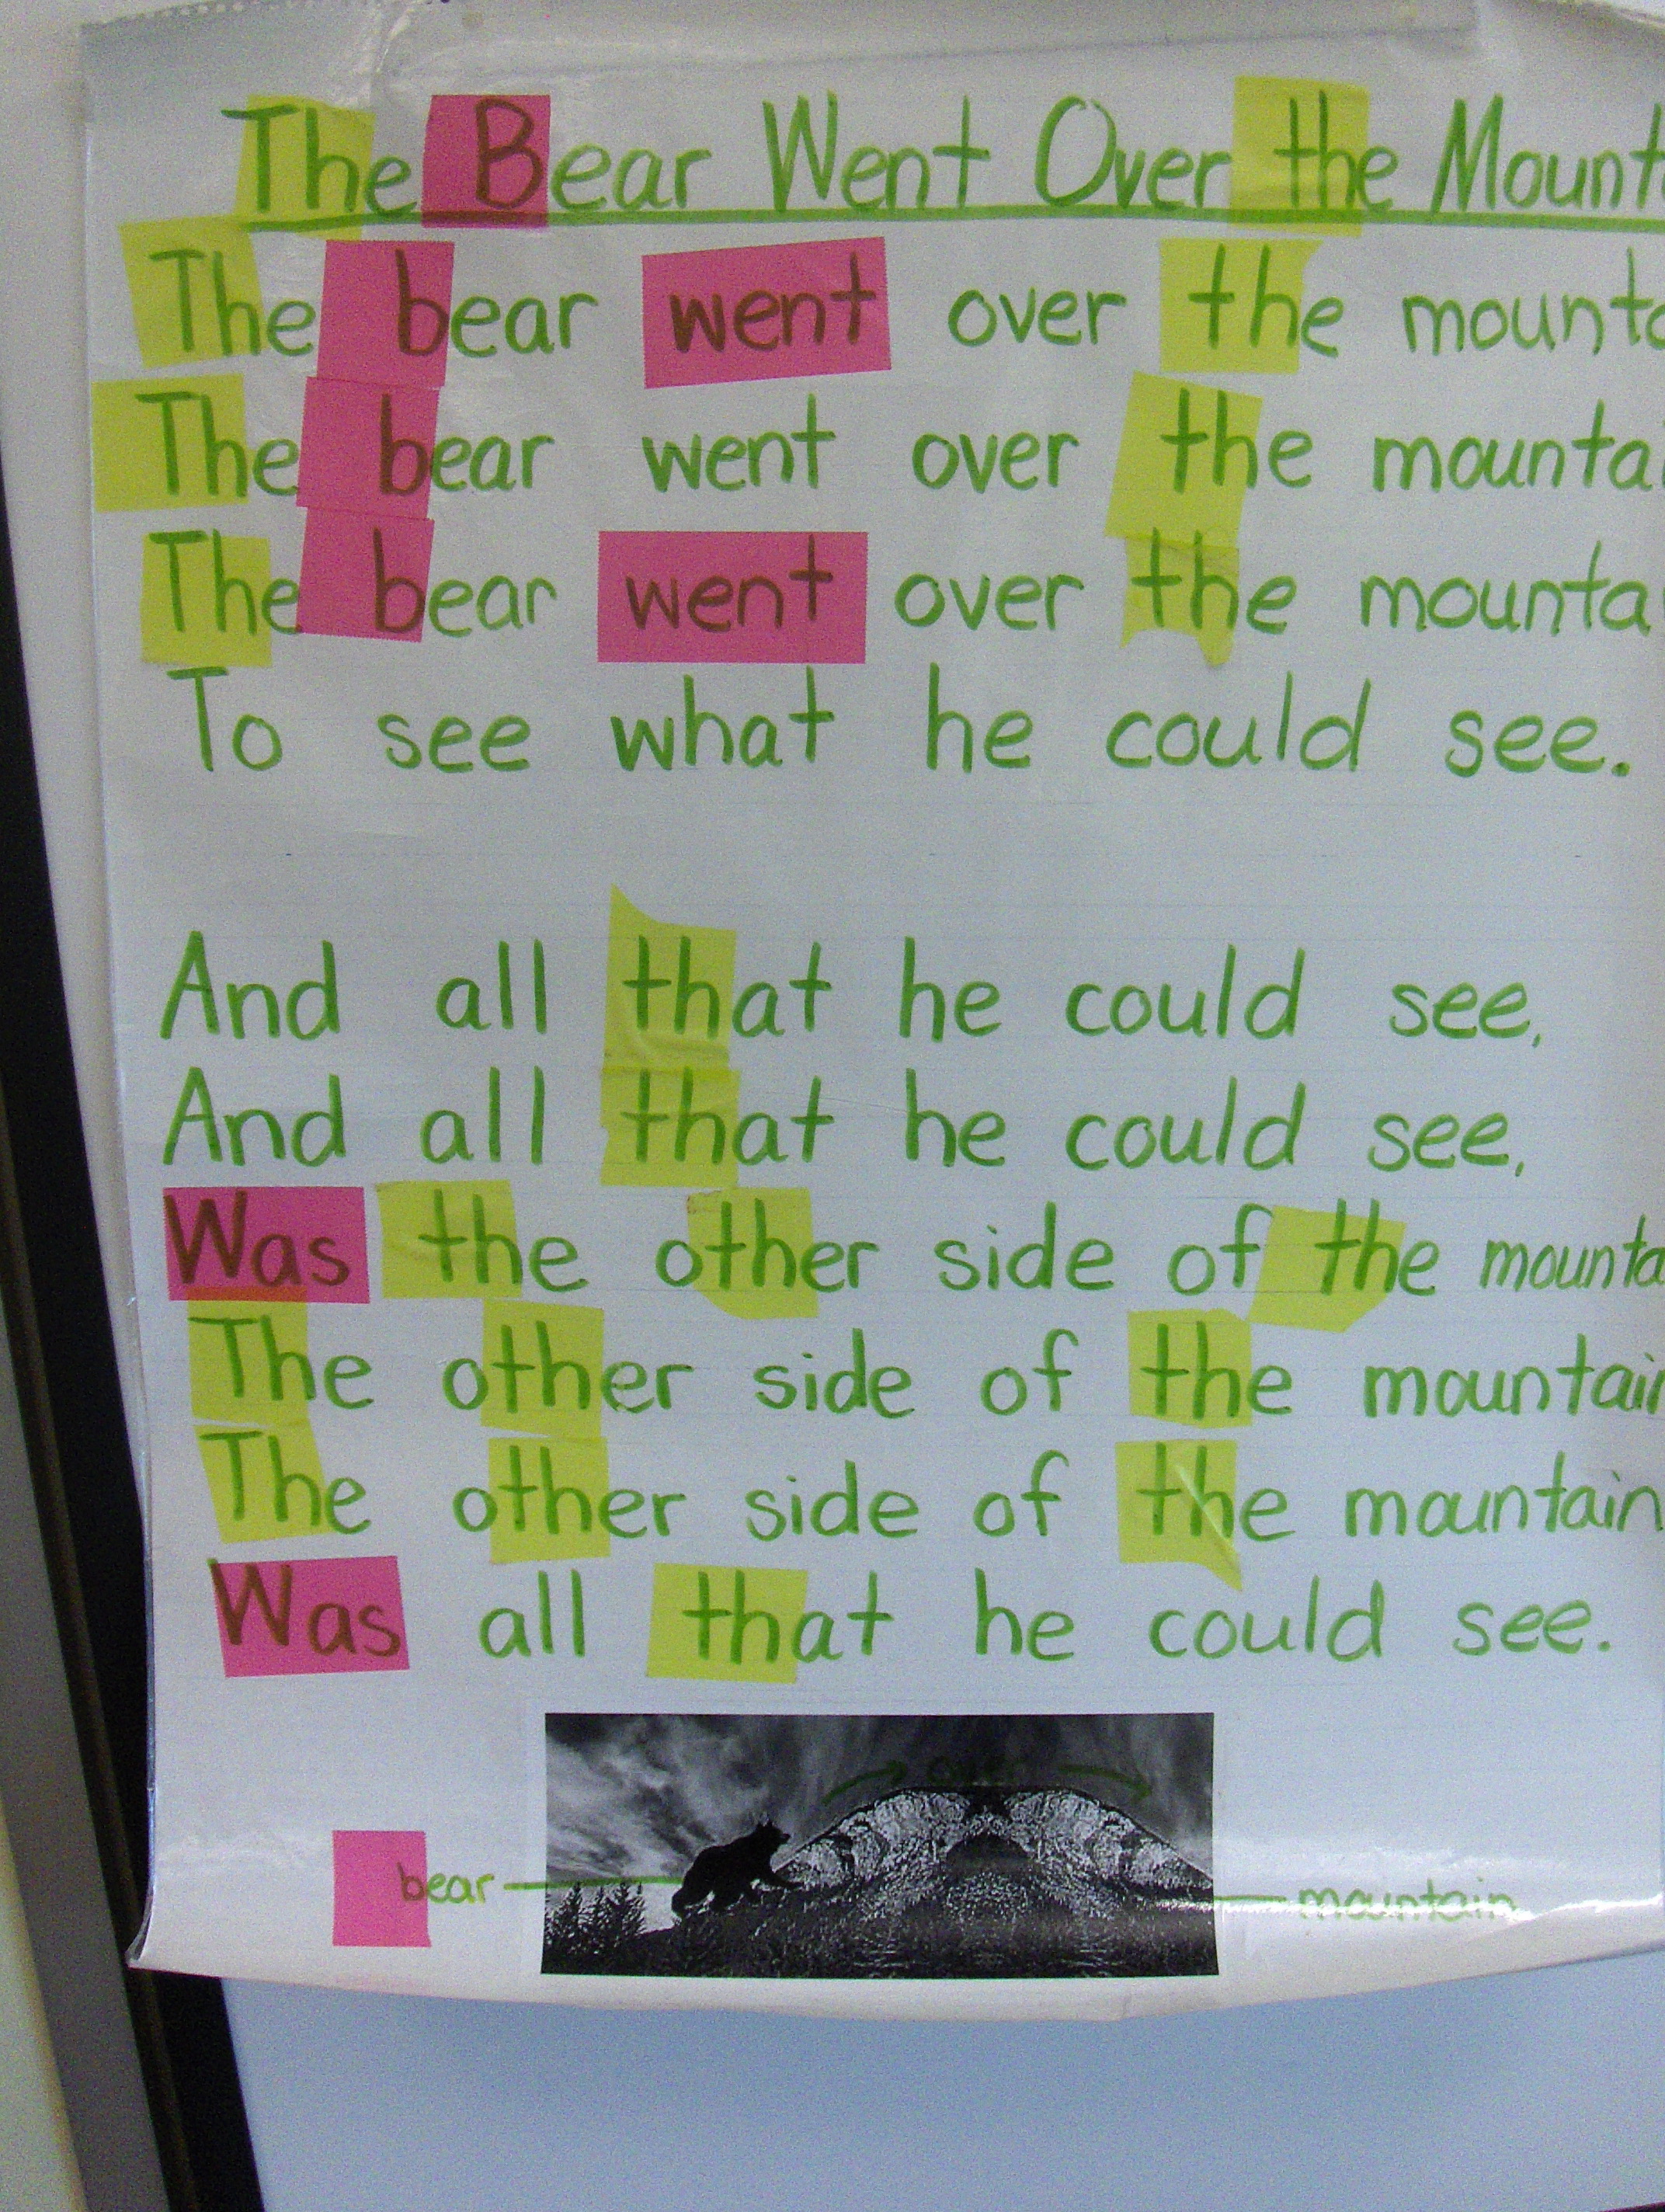 The Bear Went Over the Mount
The bear went over the mounta
The bear went over the mountai
The bear went over the mountai
To see what he could see.
And all that he could see,
And all that he could see,
Was the other side of the mounta
The other side of the mountain
The other side of the mountain
Was all that he could see.
over
bear
mountain